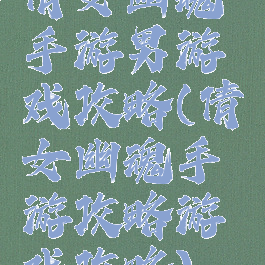 倩女幽魂
手游男游
戏攻略(倩
女幽魂手
游攻略游
戏攻略)